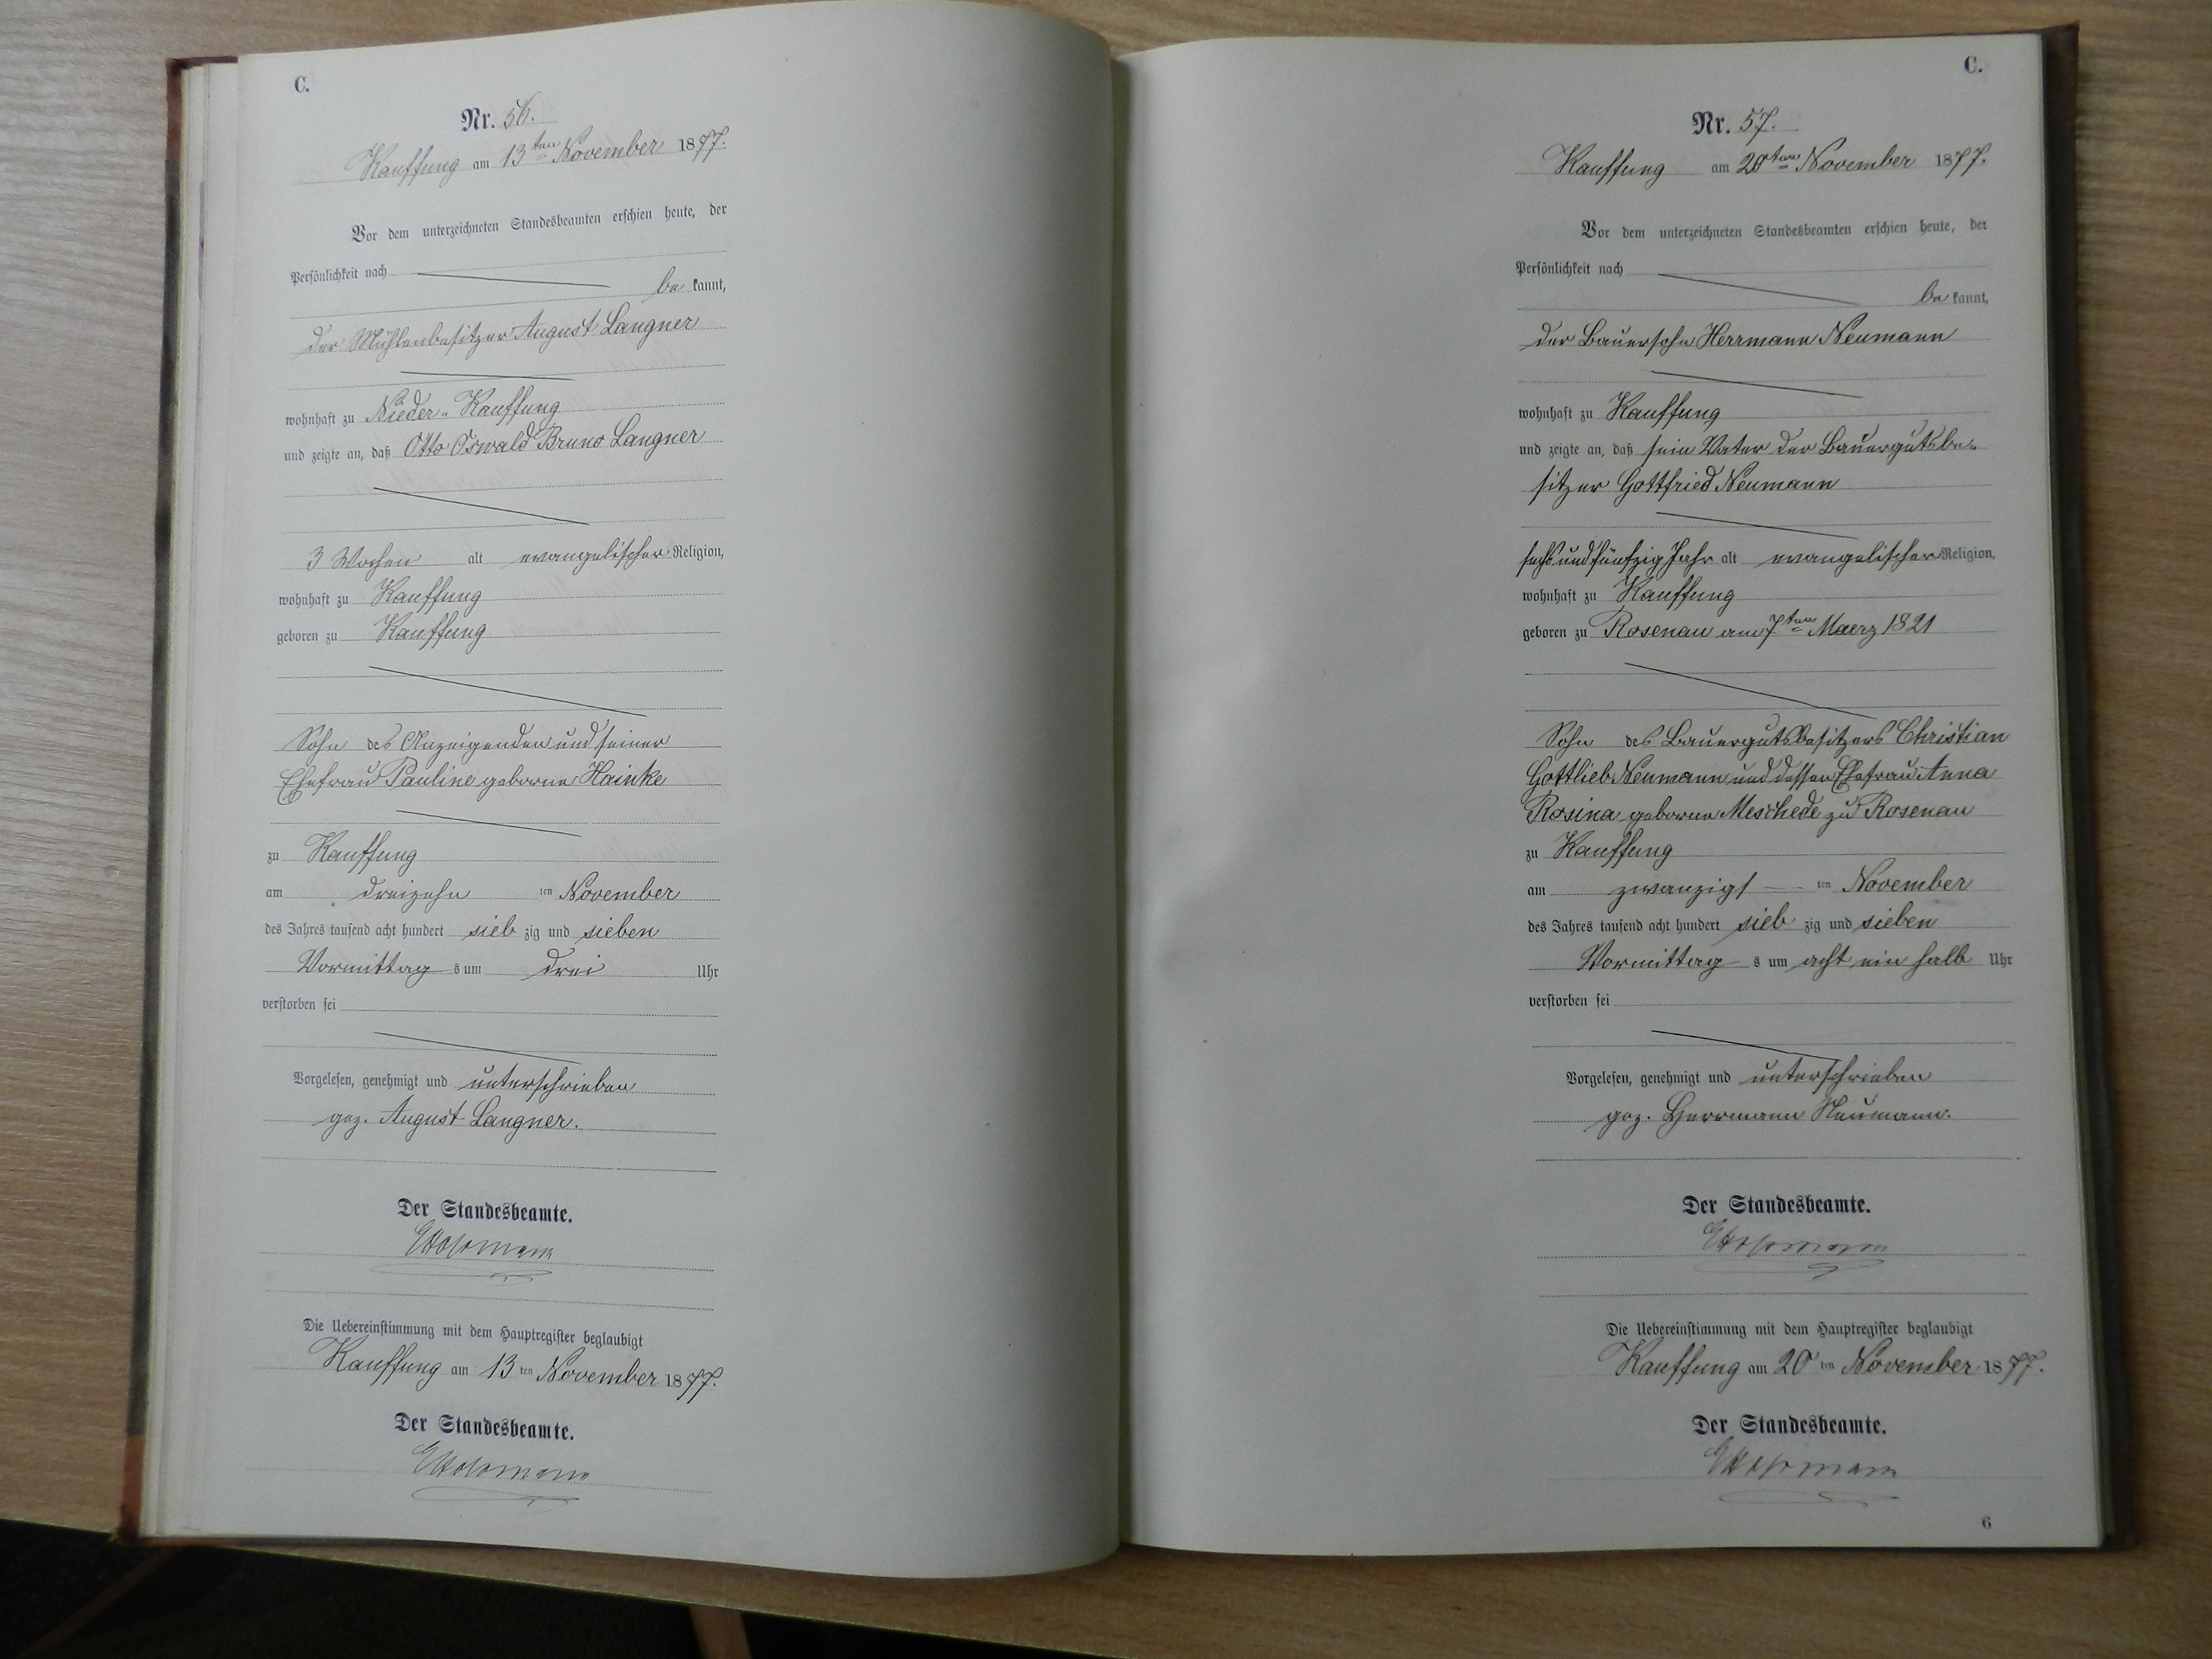 C.
Nr. 56.
Kauffung am 13ten November 1877.
Vor dem unterzeichneten Standesbeamten erschien heute, der
Persönlichkeit nach
be kannt,
der Mühlenbesitzer August Langner
wohnhaft zu Nieder-Kauffung
und zeigte an, daß Otto Oswald Bruno Langner
3 Wochen alt evangelischer Religion,
wohnhaft zu Kauffung
geboren zu Kauffung
Sohn des Anzeigenden und seiner
Ehefrau Pauline geborne Hainke
zu Kauffung
am dreizehn ten November
des Jahres tausend acht hundert sieb zig und sieben
Vormittag s um drei Uhr
verstorben sei
Vorgelesen, genehmigt und unterschrieben
gez. August Langner.
Der Standesbeamte.
Die Uebereinstimmung mit dem Hauptregister beglaubigt
Kauffung am 13 ten November 1877.
Der Standesbeamte.
C.
Nr. 57.
Kauffung am 20ten November 1877.
Vor dem unterzeichneten Standesbeamten erschien heute, der
Persönlichkeit nach
be kannt,
der Bauersohn Herrmann Neumann
wohnhaft zu Kauffung
und zeigte an, daß sein Vater der Bauergutsbe-
sitzer Gottfried Neumann
sechs und fünfzig Jahr alt evangelischer Religion,
wohnhaft zu Kauffung
geboren zu Rosenau am 7ten Maerz 1821
Sohn des Bauergutsbesitzers Christian
Gottlieb Neumann und dessen Ehefrau Anna
Rosina geborne Meschede zu Rosenau
zu Kauffung
am zwanzigs ten November
des Jahres tausend acht hundert sieb zig und sieben
Vormittag s um acht ein halb Uhr
verstorben sei
Vorgelesen, genehmigt und unterschrieben
gez. Herrmann Neumann.
Der Standesbeamte.
Die Uebereinstimmung mit dem Hauptregister beglaubigt
Kauffung am 20 ten November 1877.
Der Standesbeamte.
6